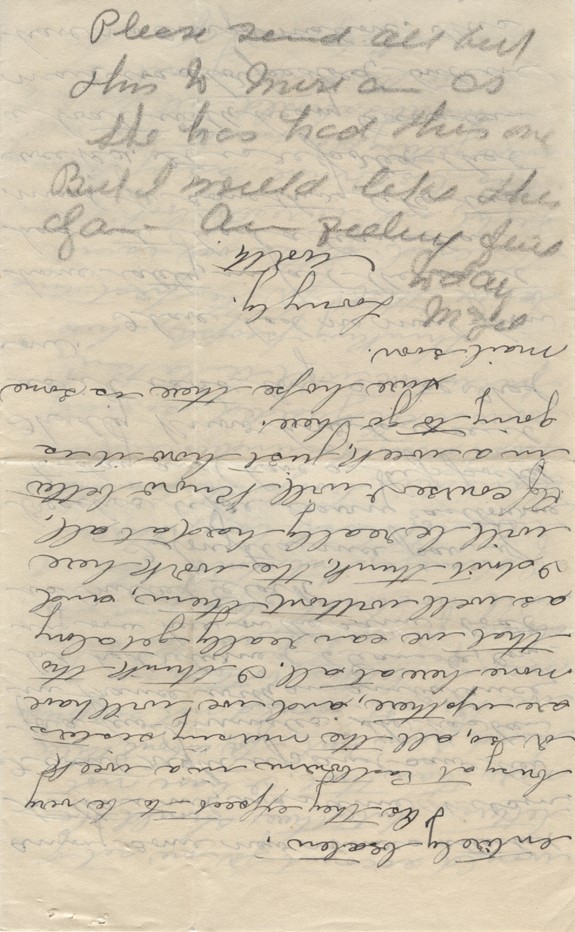 Please send all but
this to Miriam as
she has had this one
But I would like this
again Am feeling fine
today
entirely beaten.
As they expect to be very
busy at Eastbourne in a week
or so, all the nursing sisters
are up there, and we will have
none here at all. I think tho
that we can really get along
as well without them, and
I don't think the work here
will be really hard at all,
Of course I will know better
in a week, just how it is
going to go here.
Sure hope there is some
mail soon.
Lovingly.